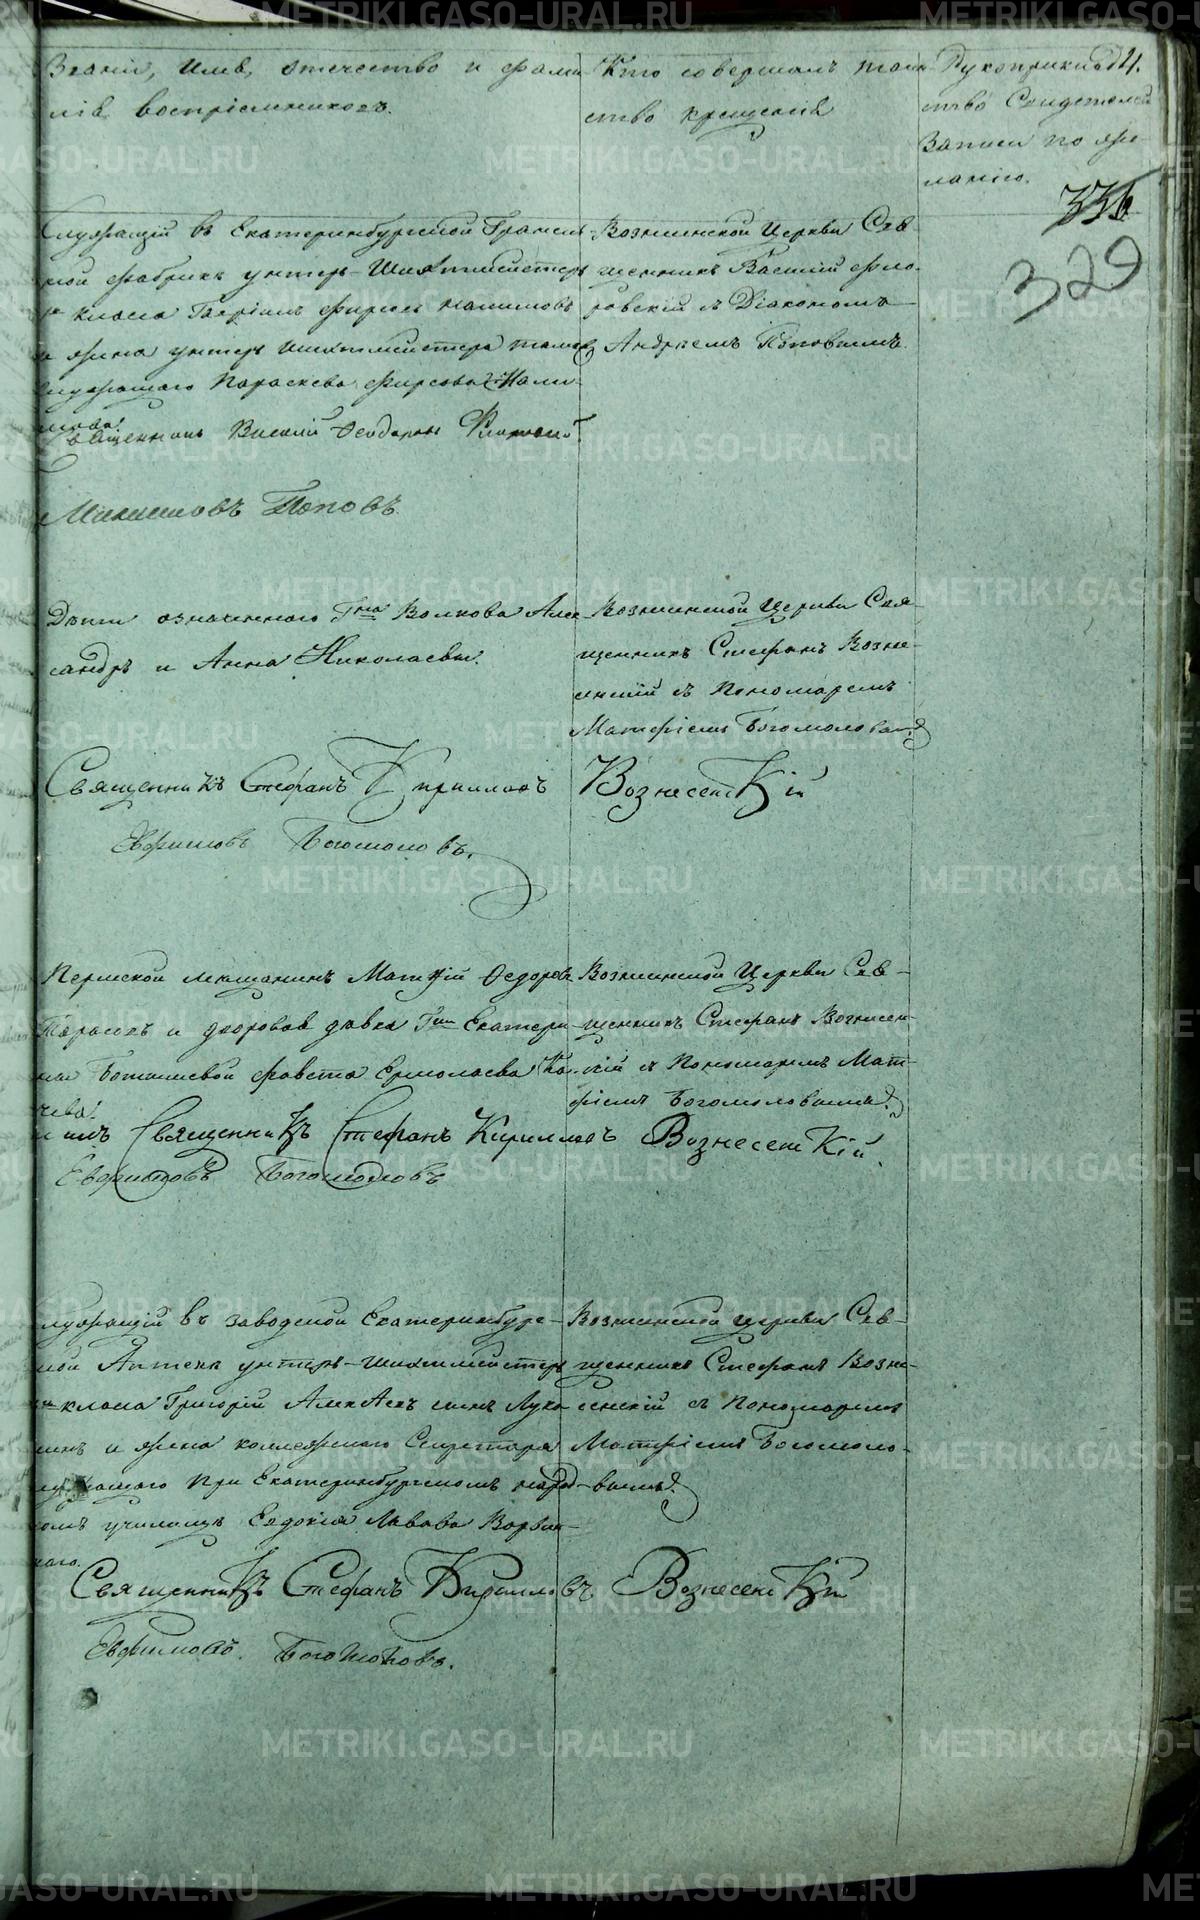 Званіе, имя, отечество и фами-
лія воспріемниковъ.
Кто совершалъ таин-
ство крещенія
Рукоприклад
ство Свидетелей
Записи по же-
ланію.
4.
336
329
Служащій въ Екатеринбургской Граниль-
ной фабрикѣ унтеръ-Шихтмейстеръ
класса Гаврiилъ Фирсовъ Налимовъ
и жена унтеръ шихтмейстера тамъ
служащаго Параскева Фирсова Нали-
мова.
Священникъ Василій Ѳеодоровъ Флоровскій
Возненской Церкви Свя-
щенникъ Василій Фло-
ровскій съ Діакономъ
Андреемъ Поповымъ.
Поповъ
Дѣти означеннаго Гна Волкова Алек-
сандръ и Анна Николаевы.
Вознесенской Церкви Свя-
щенникъ Стефанъ Возне-
сенскій съ Пономаремъ
Матфіемъ Богомоловымъ
Священникъ Стефанъ Кирилловъ Вознесенскій
Евфимовъ Богомоловъ.
Пермской мещанинъ Матвій Ѳедоровъ
Тарасовъ и дворовая дѣвка Гжи Екатери-
ны Ермолаева
Вознесенской Церкви Свя-
щенникъ Стефанъ Вознесен-
скій съ Пономаремъ Мат-
фіемъ Богомоловымъ.
Священникъ Стефанъ Кирилловъ Вознесенскій.
Евфимовъ Богомоловъ
Служащій въ заводской Екатеринбург-
ской Аптекѣ унтеръ-шихтмейстеръ
класса Григорій Алексѣевъ сынъ Лука
инъ и жена коллежскаго Секретаря
служащаго при Екатеринбургскомъ народ-
номъ училищѣ Евдокія Львова
Вознесенской церкви Свя-
щенникъ Стефанъ Возне-
сенскій съ Пономаремъ
Матфіемъ Богомоло-
вымъ.
Священникъ Стефанъ Кирилловъ Вознесенскій
Евфимовъ. Богомоловъ.
METRIKI.GASO-URAL.RU